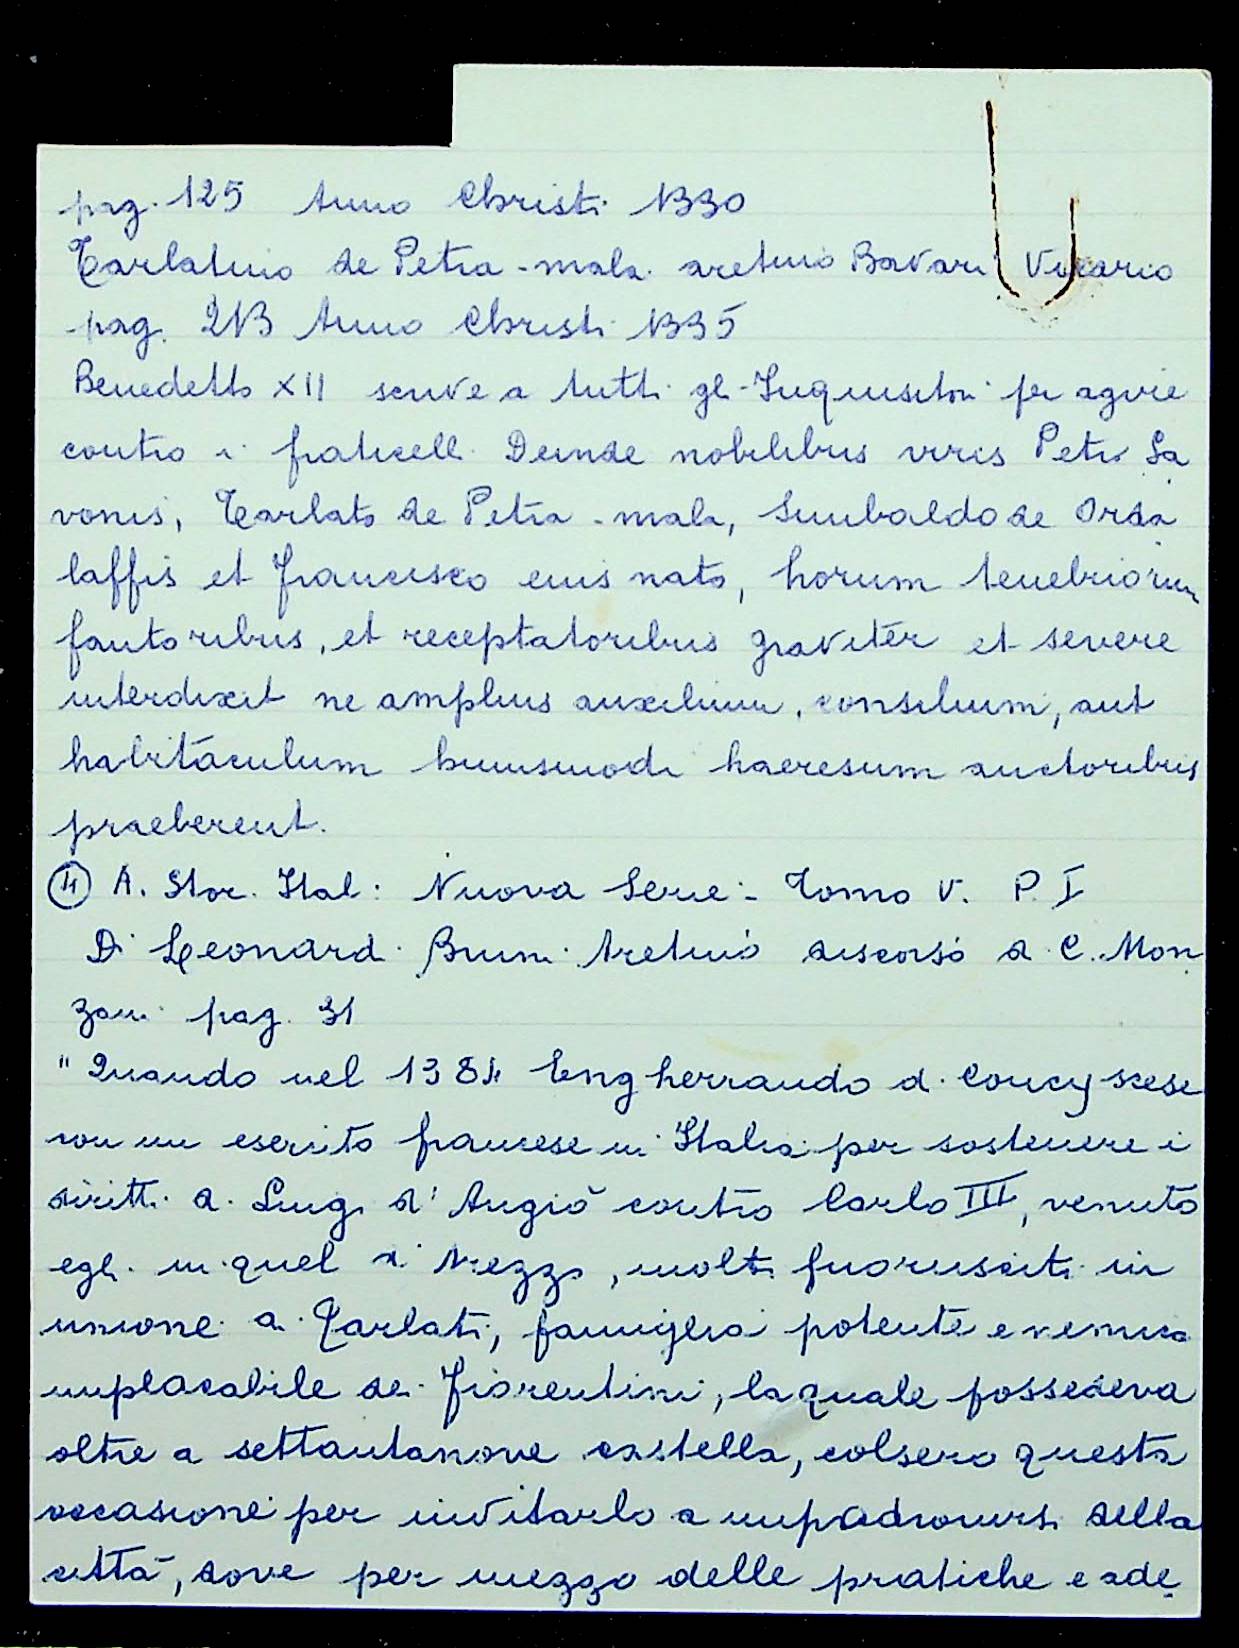 pag. 125 Anno Christi 1330
Tarlatino de Petra-mala aretino Bavari Vicario
pag. 213 Anno Christi 1335
Benedetto XII scrive a tutti gl'Inquisitori per agire
contro i fraticelli. Deinde nobilibus viris Petro Sa
vonis, Tarlato de Petra-mala, Sinibaldo de Orda
laffis et Francisco eius nato, horum tenebrionum
fautoribus, et receptatoribus graviter et severe
interdixit ne amplius auxilium, consilium, aut
habitaculum huiusmodi haeresum auctoribus
praeberent.
(4) A. Stor. Ital: Nuova Serie - Tomo V. P. I
Di Leonardi Bruni Aretino discorso di C. Mon
zani pag. 31
"Quando nel 1384 Engherrando di Coucy scese
con un esercito francese in Italia per sostenere i
diritti di Luigi d'Angiò contro Carlo III, venuto
egli in quel di Arezzo, molti fuorusciti in
unione ai Tarlati, famiglia potente e nemica
implacabile dei Fiorentini, la quale possedeva
oltre a settantanove castella, colsero questa
occasione per invitarlo a impadronirsi della
città, dove per mezzo delle pratiche e ade